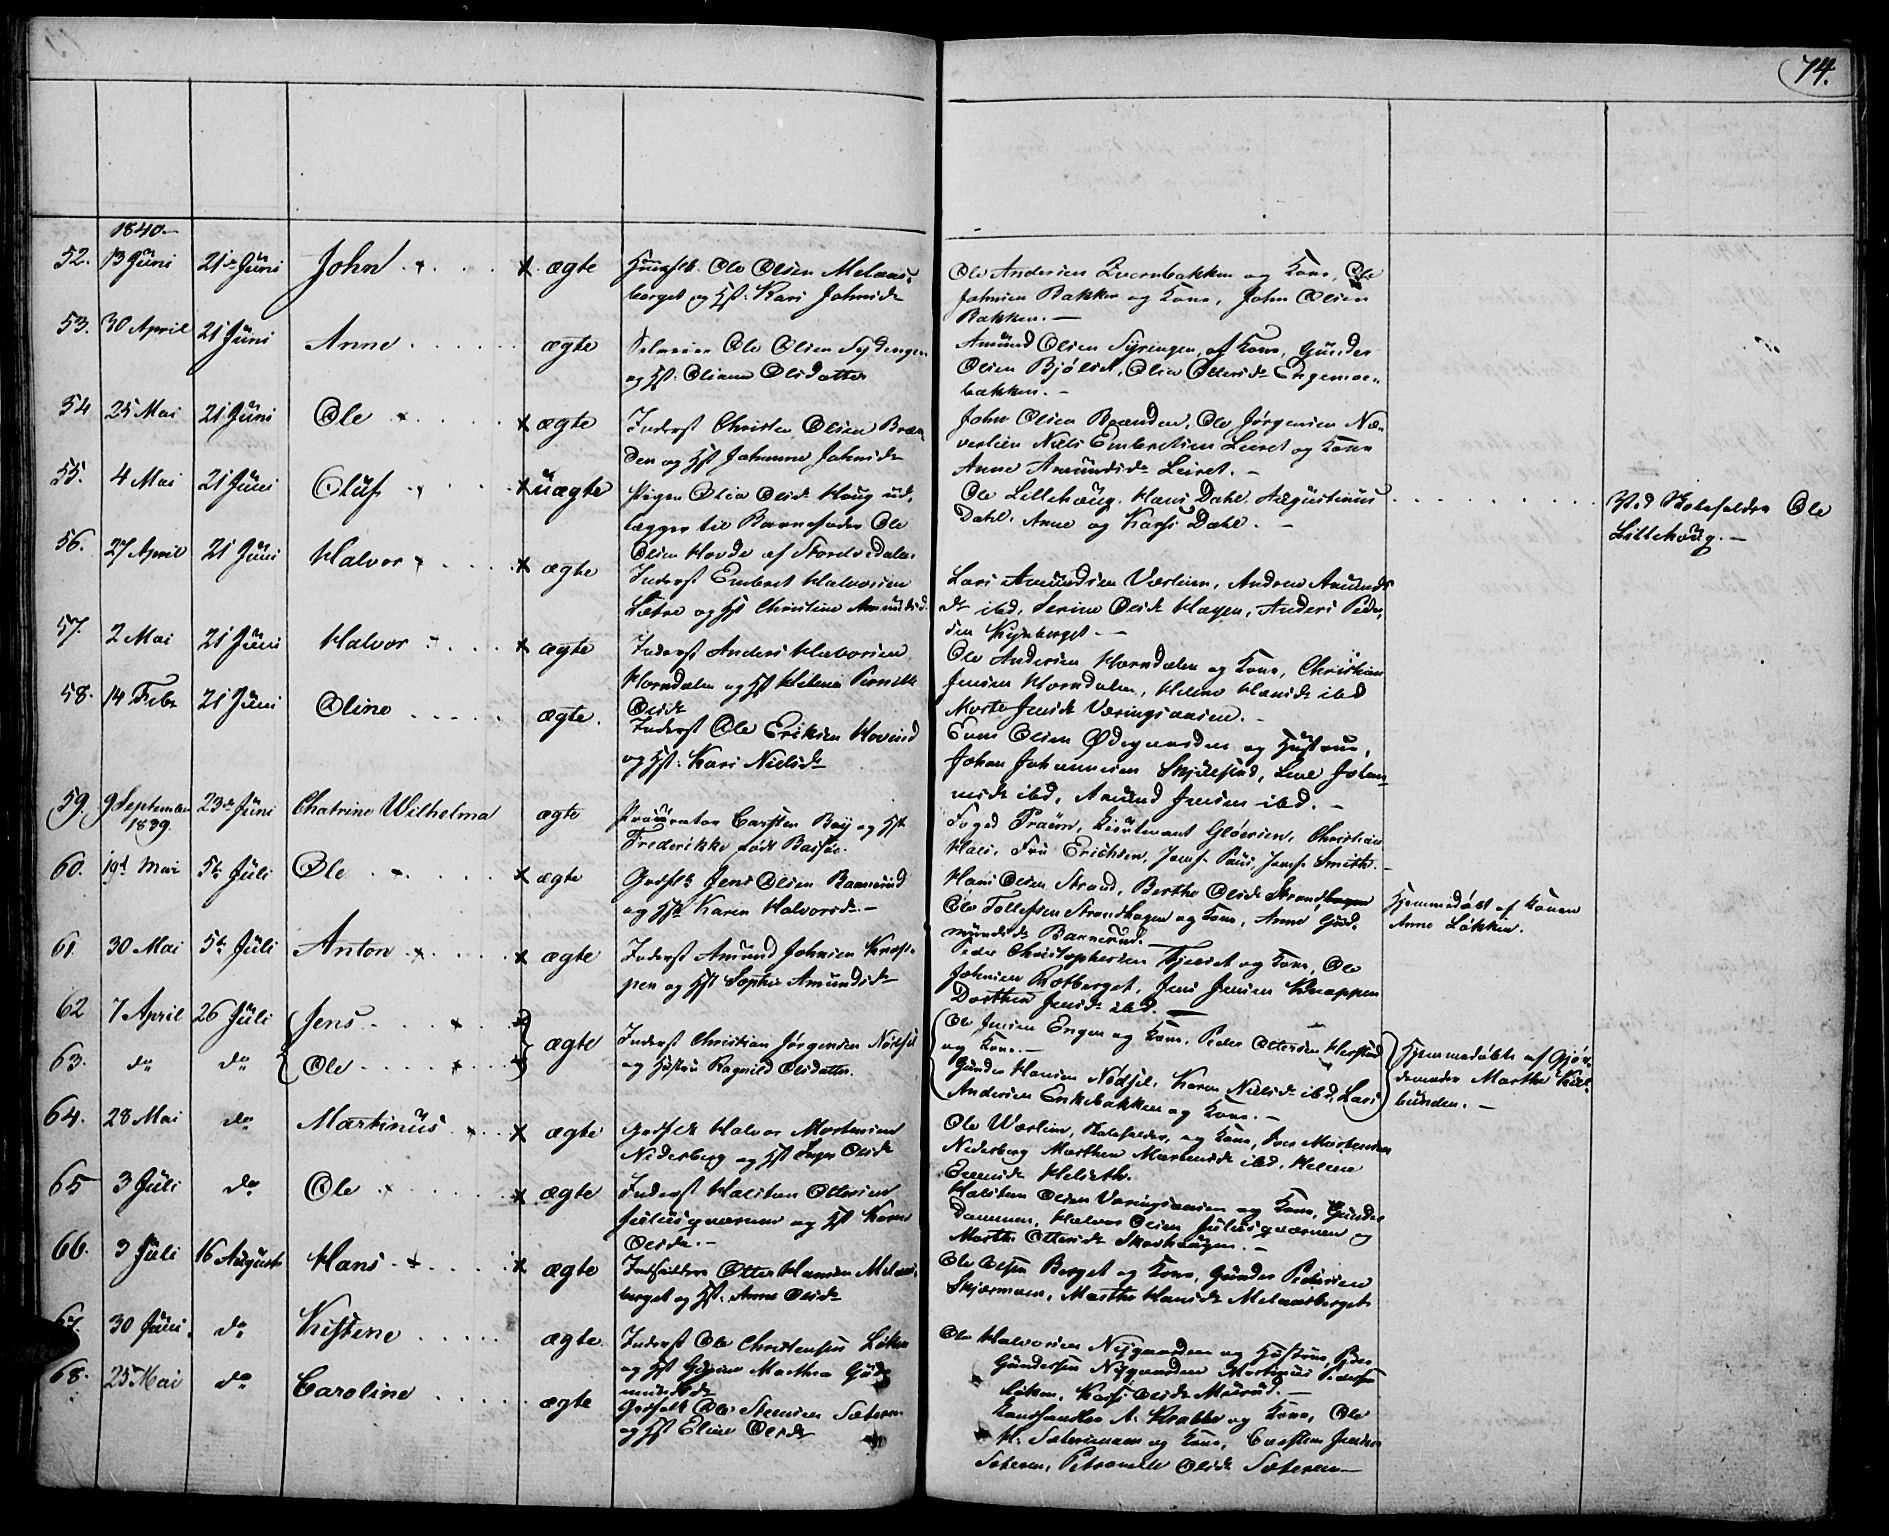 74.
1840.
52. 13 Juni 21de Juni John ægte Huusfb. Ole Olsen Melaas-
berget og Hst. Kari Johnsdr
Ole Andersen Qvernbakken og Kone, Ole
Johnsen Bakken og Kone, John Olsen
Bakken.
53. 30 April 21 Juni Anne ægte Ole Olsen
og Hst. Oliana Olsdatter
Amund Olsen Syringen, og Kone, Gunder
Olsen Bjølset, Olea Ottersdr Engemoe-
bakken.
54 25 Mai 21 Juni Ole ægte Inderst Christen Olsen Bræn
den og Hst Johanne Johnsdr
John Olsen Brænden, Ole Jørgensen Næ-
verlien Niels Embretsen Leiret og Kone
Anne Amundsdr Leiret.
55. 4 Mai 21 Juni Oluf uægte Pigen Olea Olsdr Haug ud-
lægger til Barnefader Ole
Olsen Hovde af Stordvedalen
Ole Lillehoug, Hans Dahl, Augustinus
Dahl, Anne og Karsi Dahl.
Ved Rodefolden Ole
Lillehoug.
56. 27 April 21 Juni Halvor ægte Inderst Embret Halvorsen
Sætre og Hst Christine Amundsd.
Lars Amundsen Værlien, Andrea Amunds
dr ibd, Serine Olsdr Hagen, Anders Peder-
sen Kynberget.
57. 2 Mai 21 Juni Halvor ægte Inderst Anders Halvorsen
Horndalen og Hst Helena Pernille
Olsdr
Ole Andersen Horndalen og Kone, Christian
Jensen Horndalen, Helene Hansdr ibd
Marte Jensdr Væringsaasen.
58. 14 Febr 21 Juni Oline ægte. Inderst Ole Eriksen Hovind
og Hst. Kari Nielsdr
Even Olsen Ødegaarden og Hustrue,
Johan Johannesen Skjulestad, Lene Johan-
nesdr ibd, Amund Jensen ibd.
59. 9 September 1839. 23de Juni Chatrine Wilhelma ægte Procurator Carsten Boy og Hst
Frederikke født Bassøe.
Foged Traun, Lieutenant Gløersen, Christian
Hals, Fru Erichsen, Jomf. Paus, Jomf. Smith.
60. 19d Mai 5te Juli Ole ægte Gaardfb. Jens Olsen Barnerud
og Hst Karen Halvorsdr.
Hans Olsen Strand, Berthe Olsdr Strandhagen
Ole Tollefsen Strandhagen og Kone, Anne Gud-
mundsdr Barnerud.
Hjemmedøbt af Konen
Anne Løkken.
61. 30 Mai 5te Juli Anton ægte Inderst Amund Johnsen Knap-
pen og Hst Sophie Amundsdr
Peder Christophersen Fjeldet og Kone, Ole
Johnsen Rotberget, Jens Jensen Knappen
Dorthea Jensdr ibd.
62 7 April 26 Juli Jens
63. do do Ole ægte Inderst Christian Jørgensen Nødsel
og Hustru Ragnild Olsdatter.
Ole Jensen Engen og Kone, Peder Ottersen Herstad
og Kone.
Gunder Hansen Nødsel, Karen Nielsdr ibd, Lars
Andersen Enkebakken og Kone.
Hjemmedøbte af Gjor-
demoder Marthe Kiel-
bunden.
64. 28 Mai do Martinus ægte Gaardfb. Halvor Mortensen
Nedersberg og Hst Inger Olsdr
Ole Wærlien, og Kone, Iver Mortensen
Nedersberg Marthea Mortensdr ibd, Helene
Evensdr Helseth.
65 3 Juli do Ole ægte Inderst Halsten Ottersen
Juliusqværnen og Hst Karen
Olsdr.
Halsten Olsen Væringsaasen og Kone, Gunder
Dammen, Halvor Olsen Juliusqværnen og
Marthe Ottersdr Skovhaugen.
66. 3 Juli 16 August Hans ægte Indsidder Otter Hansen Melaas-
berget og Hst. Anne Olsdr
Ole Olsen Berget og Kone, Gunder Pedersen
Skjærmoen, Marthe Hansdr Melaasberget
67. 30 Juni. do Kistine ægte Inderst Ole Christensen Løken
og Hst Gurine Marthea Gud-
mundsdr
Ole Halvorsen Nygaarden og Hustrue, Peder
Gundersen Nygaarden Martinus Pedersen
Løken, Karsi Olsdr Maurud.
68. 25 Mai do Caroline ægte Gaardfb Ole Steensen Sæteren
og Hst Eline Olsdr
Landhandler A. Krabbe og Kone, Ole
H. Sætersmoen og Kone, Carsten Jensen
Sæteren, Petronelle Olsdr Sæteren